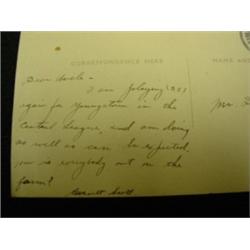 CORRESPONDENCE HERE
NAME AND
Dear Uncle -
I am playing
again for Youngstown in the
Central League, and am doing
as well as can be expected,
how is everybody out on the
farm?
Everett Scott
Mr.